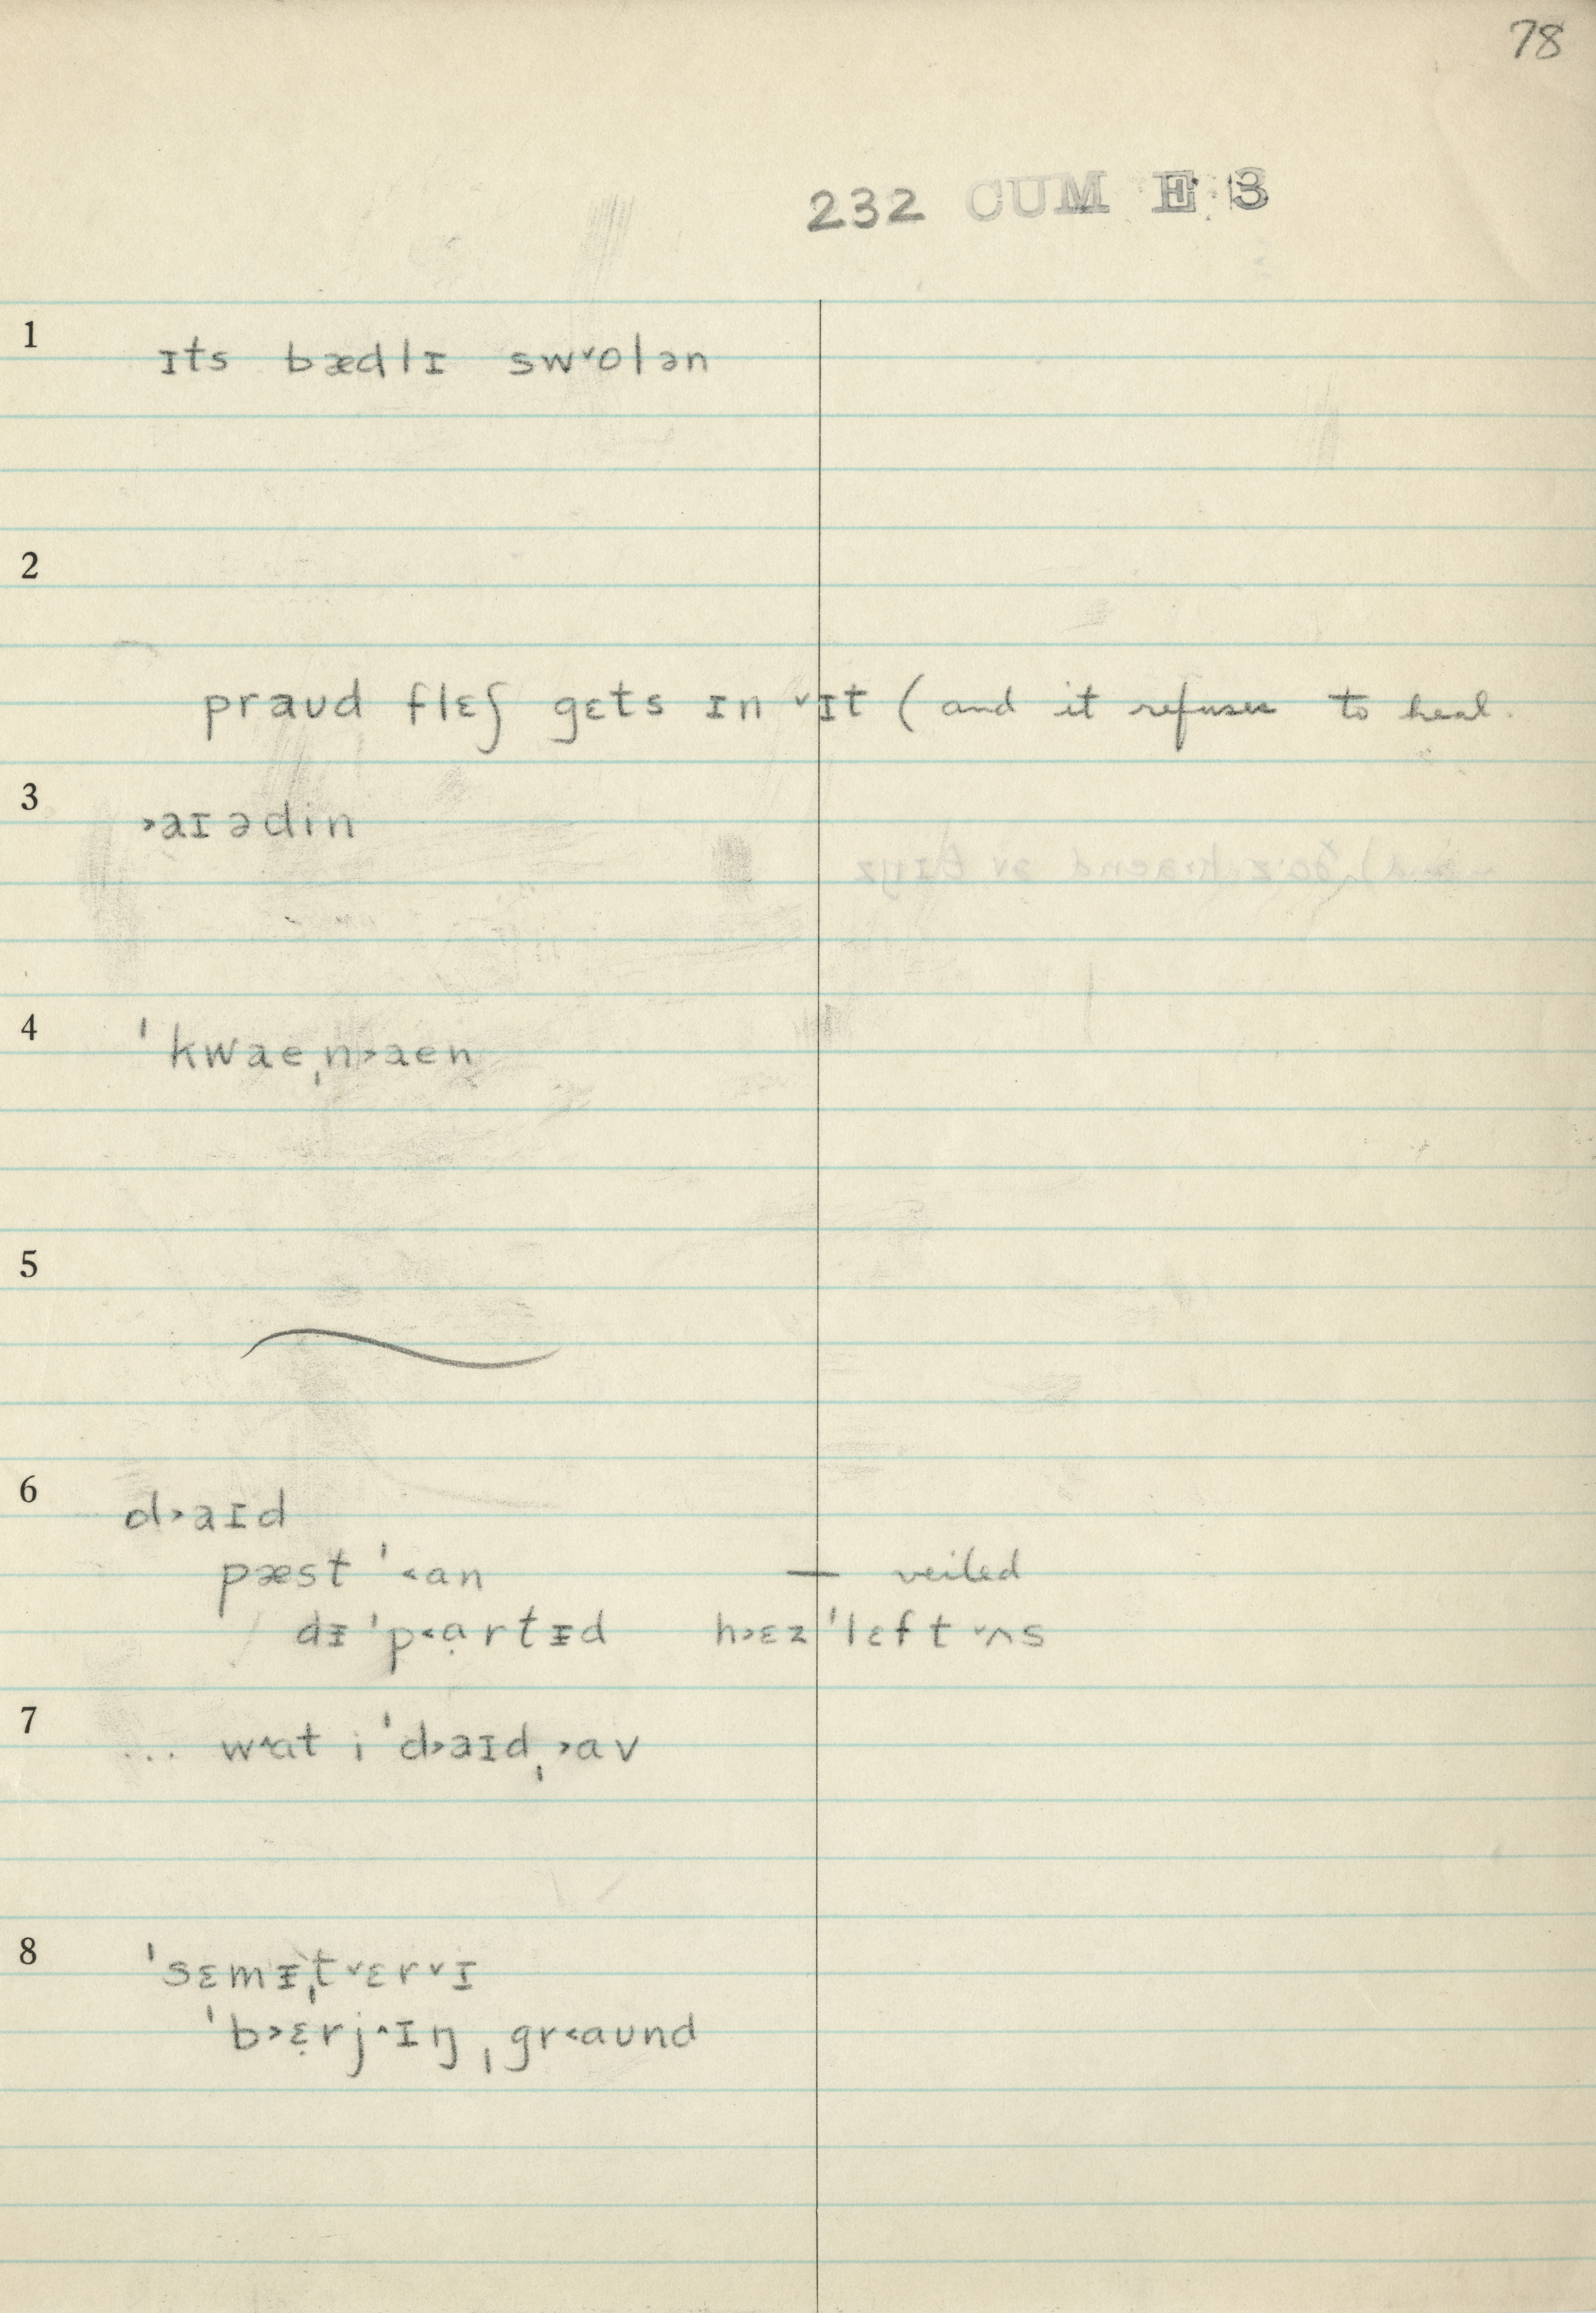 78
232 CUM E 3
1
ɪts bædlɪ swᵛolən
2
praʊd flɛʃ gɛts ɪn ᵛɪt (and it refuses to heal.
3
˃aɪədin
4
ˈkwaeˌn˃aen
5
6
d˃aɪd
pæst ˈ˂an — veiled
dᵻˈp˂ạrtᵻd h˃ɛzˈlɛft ᵛʌs
7
... wᶺat iˈd˃aɪdˌ˃av
8
ˈsɛmᵻˌtᵛɛrᵛɪ
ˈb˃ɛ̣rjᶺɪŋˌgr˂aʊnd